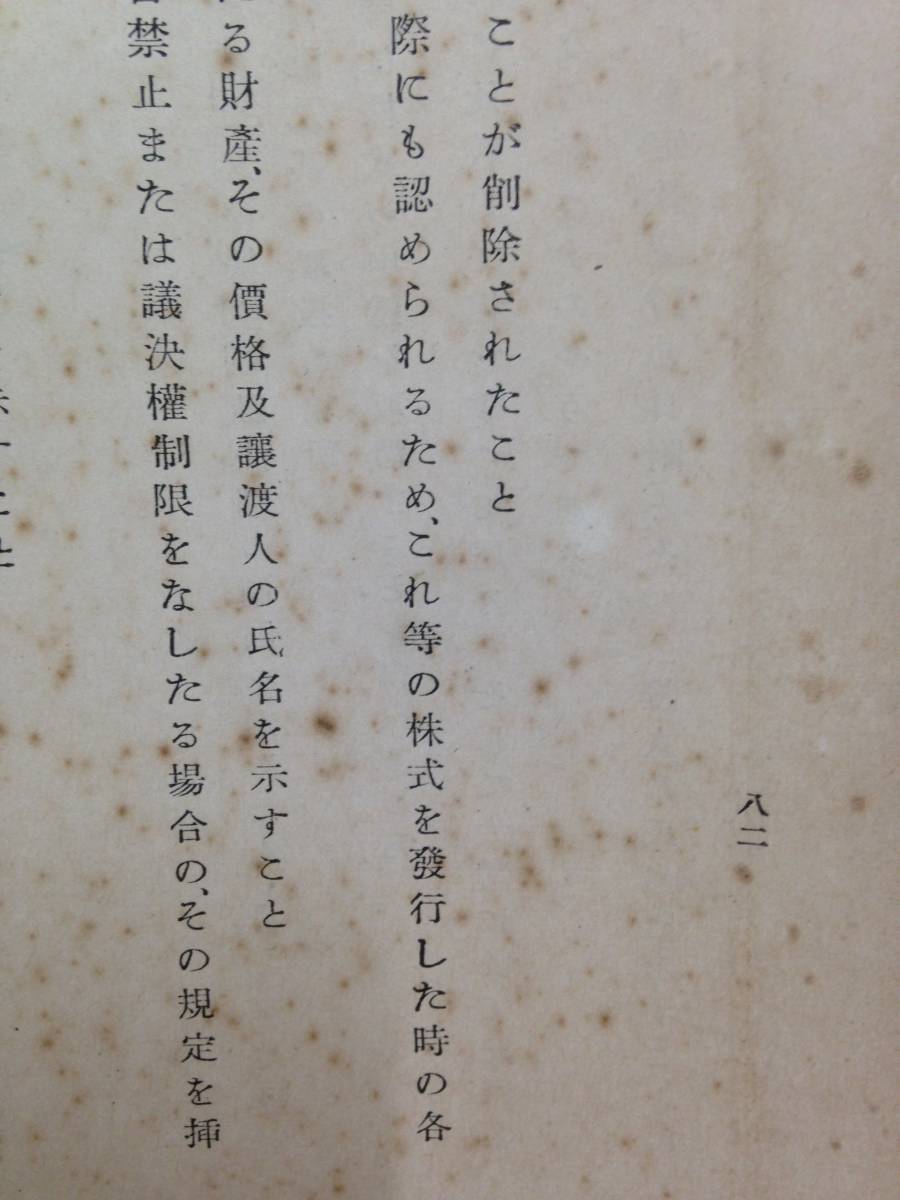 八二
ことが削除されたこと
際にも認められるため、これ等の株式を發行した時の各
る財產、その價格及讓渡人の氏名を示すこと
禁止または議決權制限をなしたる場合の、その規定を挿